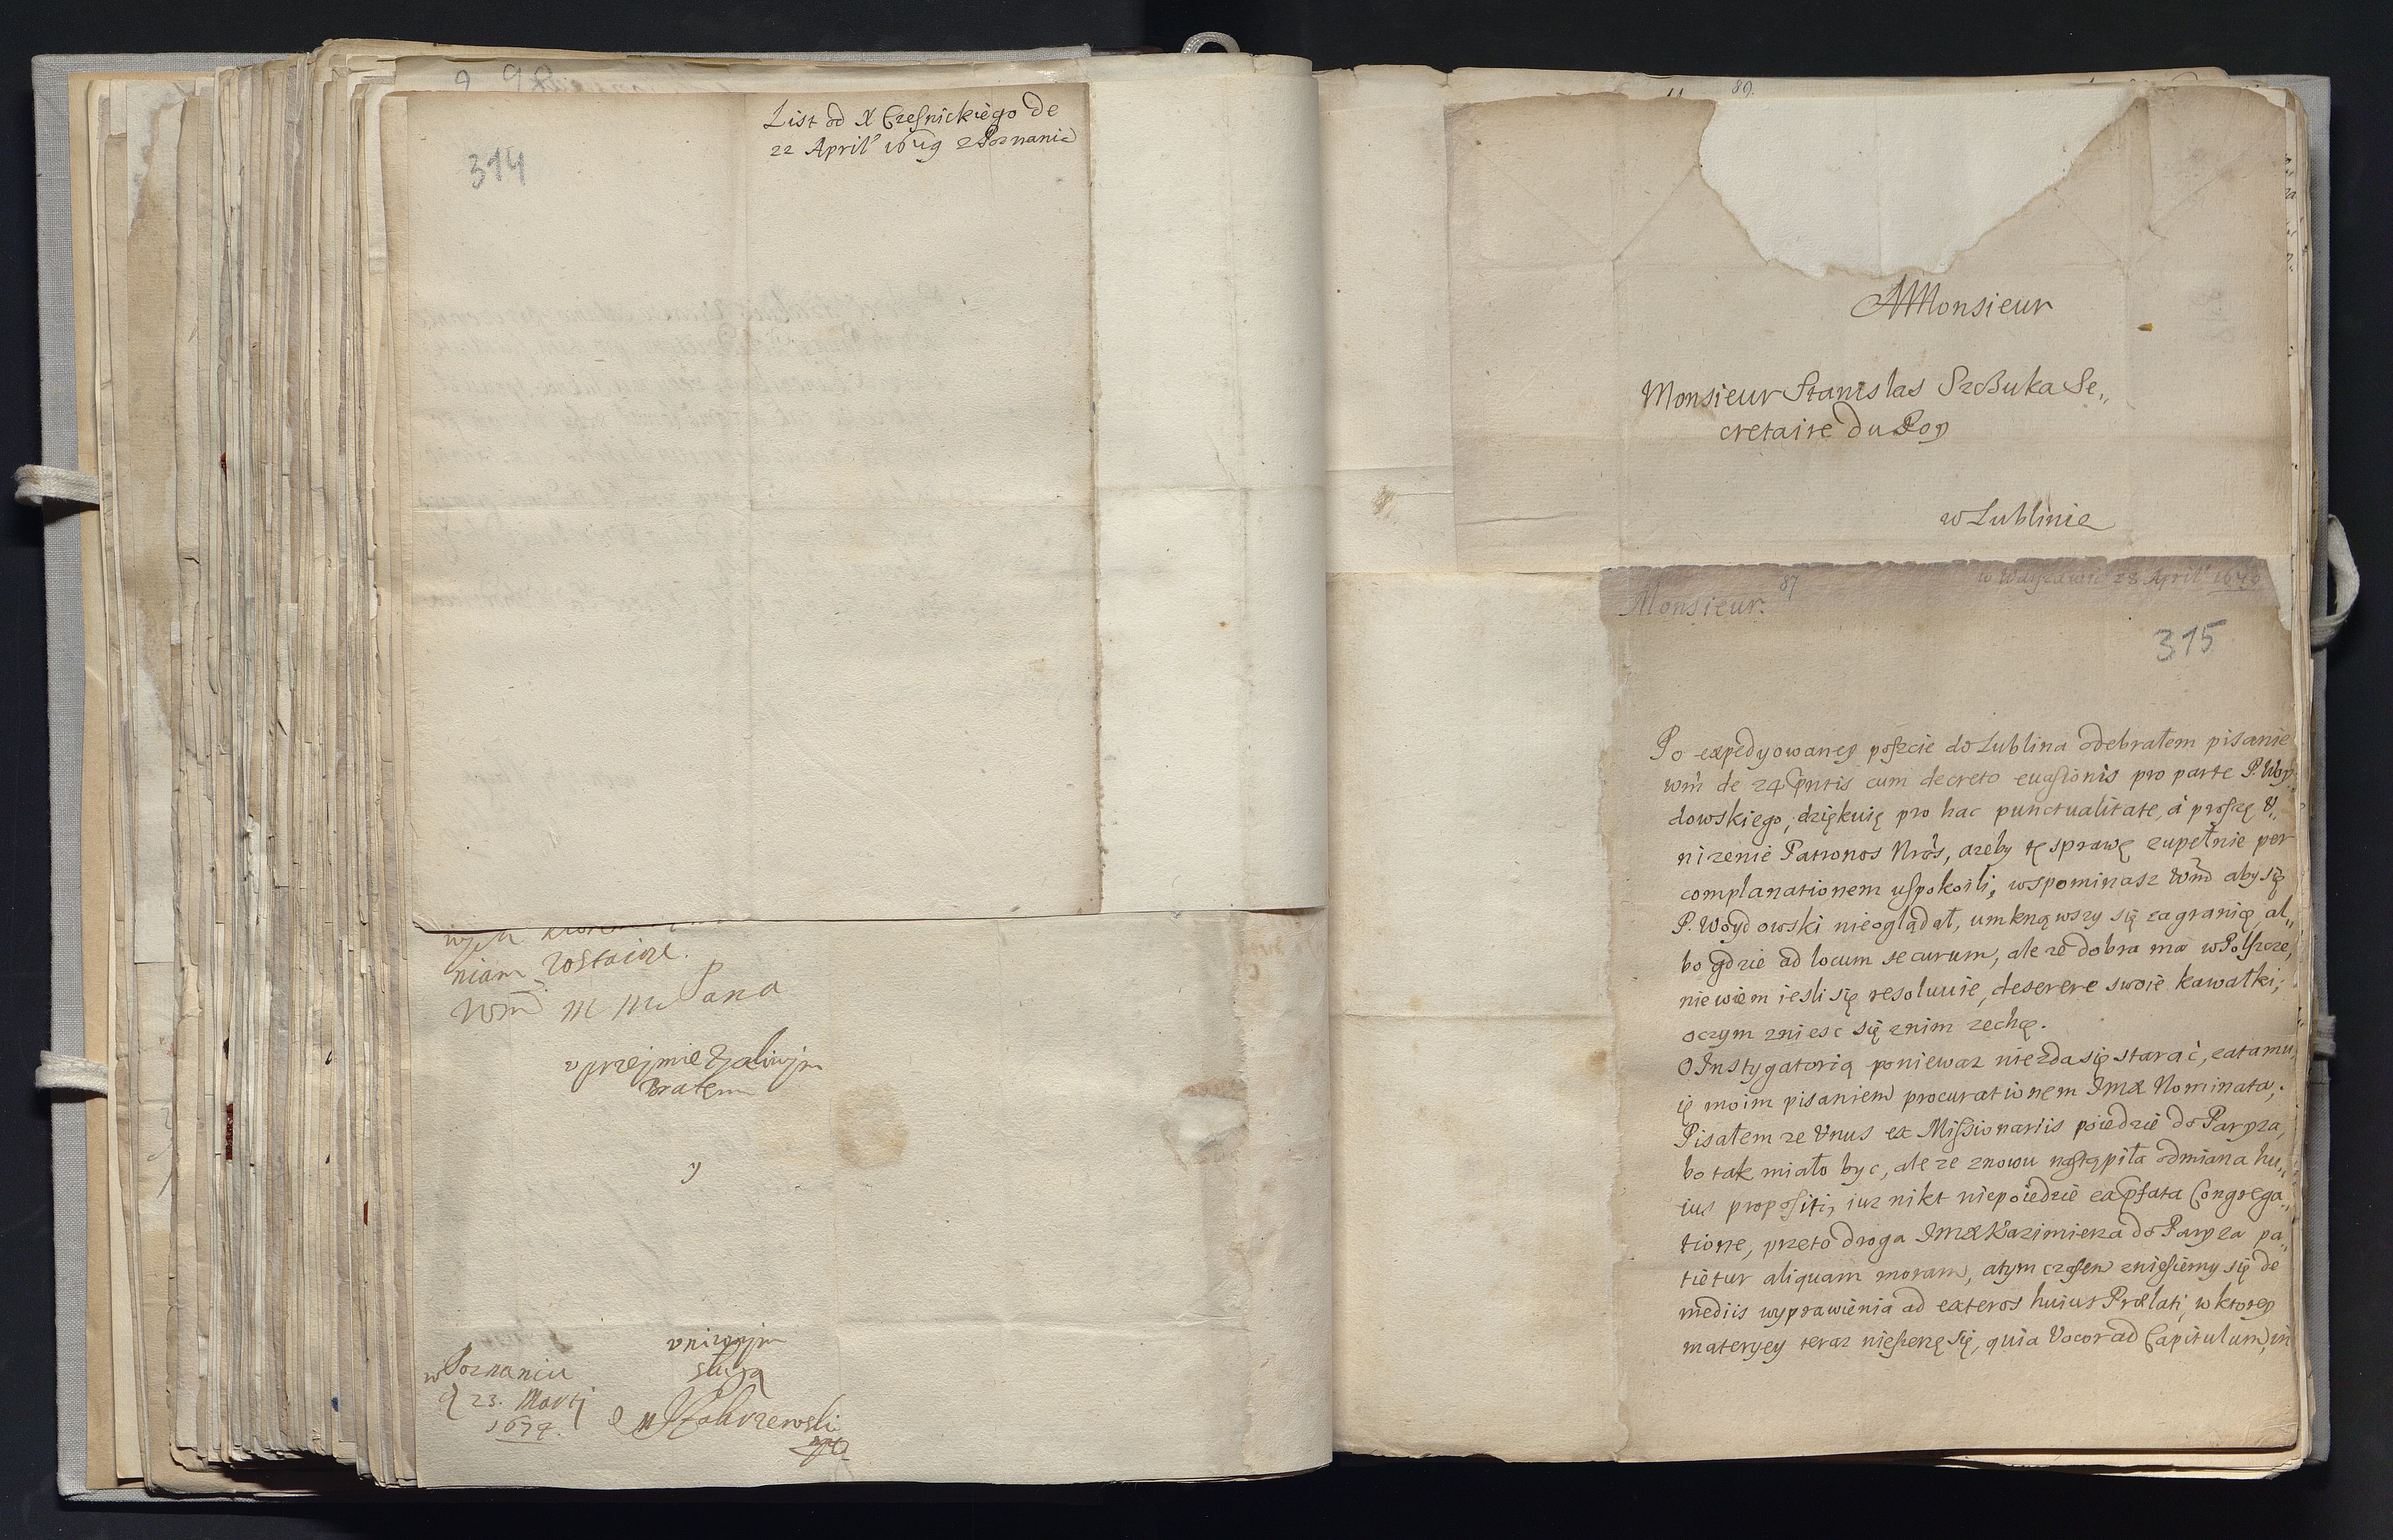 314
List od X Czesnickiego de
22 April 1679 z Poznania
niam zostaiąc.
Wm m m Pana
uprzejmie życzliwym
Bratem
y
uniżonym
sługą
w Poznaniu
d 23. Martj
1674.
89.
Monsieur
Monsieur Stanislas Szczuka Se„
cretaire du Roy
w Lublinie
87
w Warszawie 28 April 1679
Monsieur.
315
Po expedyowaney poszcie do Lublina odebrałem pisanie
wm de 24 pntis cum decreto euasionis pro parte P. Woy
dowskiego, dziękuię pro hac punctualitate, á proszę V„
niżenie Patronos Nros, ażeby tę sprawę zupełnie per
complanationem uspokoili, wspominasz Wm aby się
P. Woydowski nieoglądał, umknąwszy się zagranicę al„
bo gdzie ad locum securum, ale że dobra ma w Polszcze,
niewiem iesli się resoluuie, deserere swoie kawałki;
oczym zniesc się znim zechcę.
O Instygatorią ponieważ nie zda się starać, zatamu„
ię moim pisaniem procurationem Imx Nominata;
Pisałem ze Vnus ex Missionariis poiedzie do Paryża,
bo tak miało byc, ale ze znowu nastąpiła odmiana hu„
ius propositi, iuz nikt niepoiedzie ea pfata Congrega„
tione, przeto droga Imx Kazimierza do Paryza pa„
tietur aliquam moram, atym czasem zniesiemy się de
mediis wyprawienia ad exteros huius Prælati, w ktorey
materyey teraz nieszerzę się, quia Vocor ad Capitulum, in